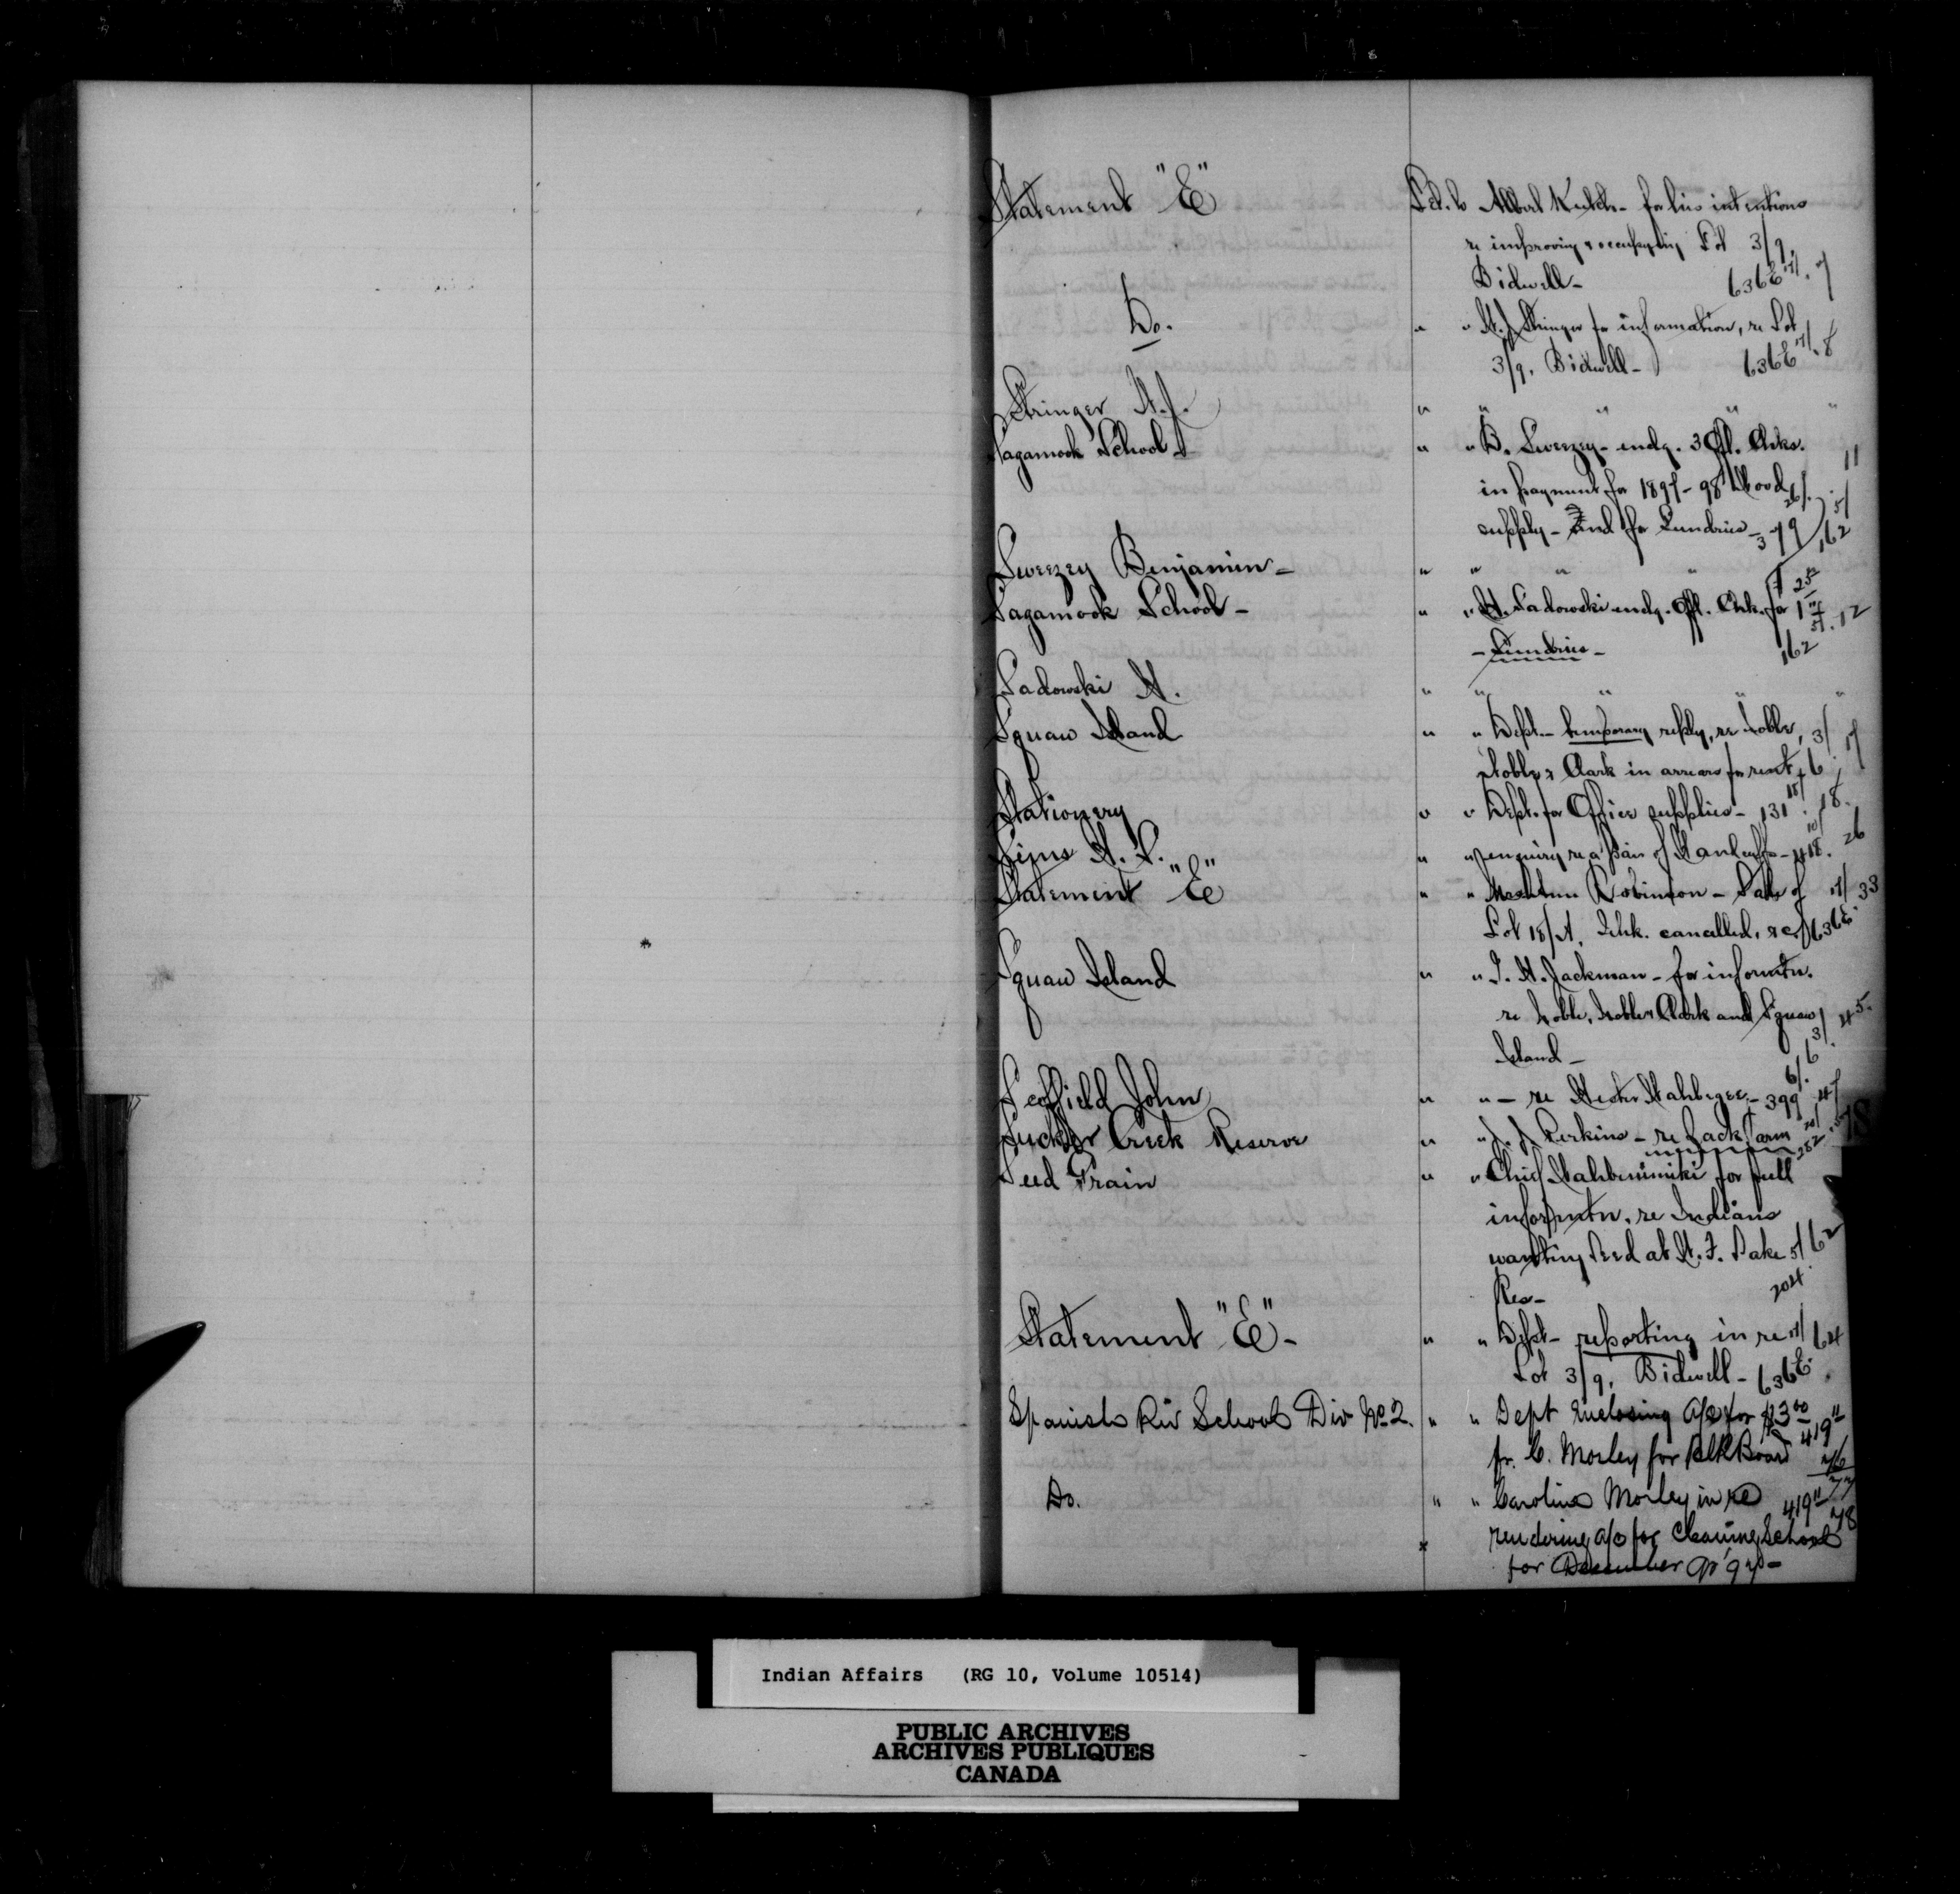 Statement "E" Let. to Albert Kutch - for his intentions
re improving & occupying Lot 3/9,
Bidwell - 636E 17/. 7
Do. " " H. J. Stringer for information, re Lot
3/9, Bidwell - 636E 17/. 8
Stringer H. J. " " " " "
Sagamook School " " B. Swerzey - encdg. 3 Offl. Chks. 11
in payment for 1897-98 Wood 26/.
supply - and for Sundries - 379 162 5/
Swerzey Benjamin - " " " "
Sagamook School - " " H. Sadowski encdg. Offl. Chk. for
- Sundries - 162 5/. 12
Sadowski H. " " " " "
Squaw Island " " Dept. - temporary reply, re Noble, 3/ 17
Noble & Clark in arrears for rent 6
Stationery " " Dept. for Office supplies - 131 18/. 18.
Sims H. S. " " enquiry re a pair of Handcuffs - 418 10/. 26
Statement "E" " " Robinson - Sale of 17/ 33
Lot 18/A, Tehk. cancelled, &c. 636E.
Squaw Island " " T. H. Jackman - for informtn.
re Noble, Noble & Clark and Squaw 3/ 45.
Island - 6
Scoffield John " " - re Hester Wahbegee - 399 6/. 47
Sucker Creek Reserve " " J. J. Perkins - re Jack Farm 282
Seed Grain " " Chief Wahbenimiki for full
informtn. re Indians
wanting Seed at W. F. Lake 5/ 62
Res - 204
Statement "E" - " " Dept - reporting in re 17/ 64
Lot 3/9, Bidwell - 636E.
Spanish Riv School Div No 2. " " Dept Enclosing a/c for $3 00 419 11
fr. C. Morley for Blk Board 76
Do. " " Caroline Morley in re 419 11 77
rendering a/c for Cleaning School 78
for December qr 97 -
78
Indian Affairs (RG 10, Volume 10514)
PUBLIC ARCHIVES
ARCHIVES PUBLIQUES
CANADA